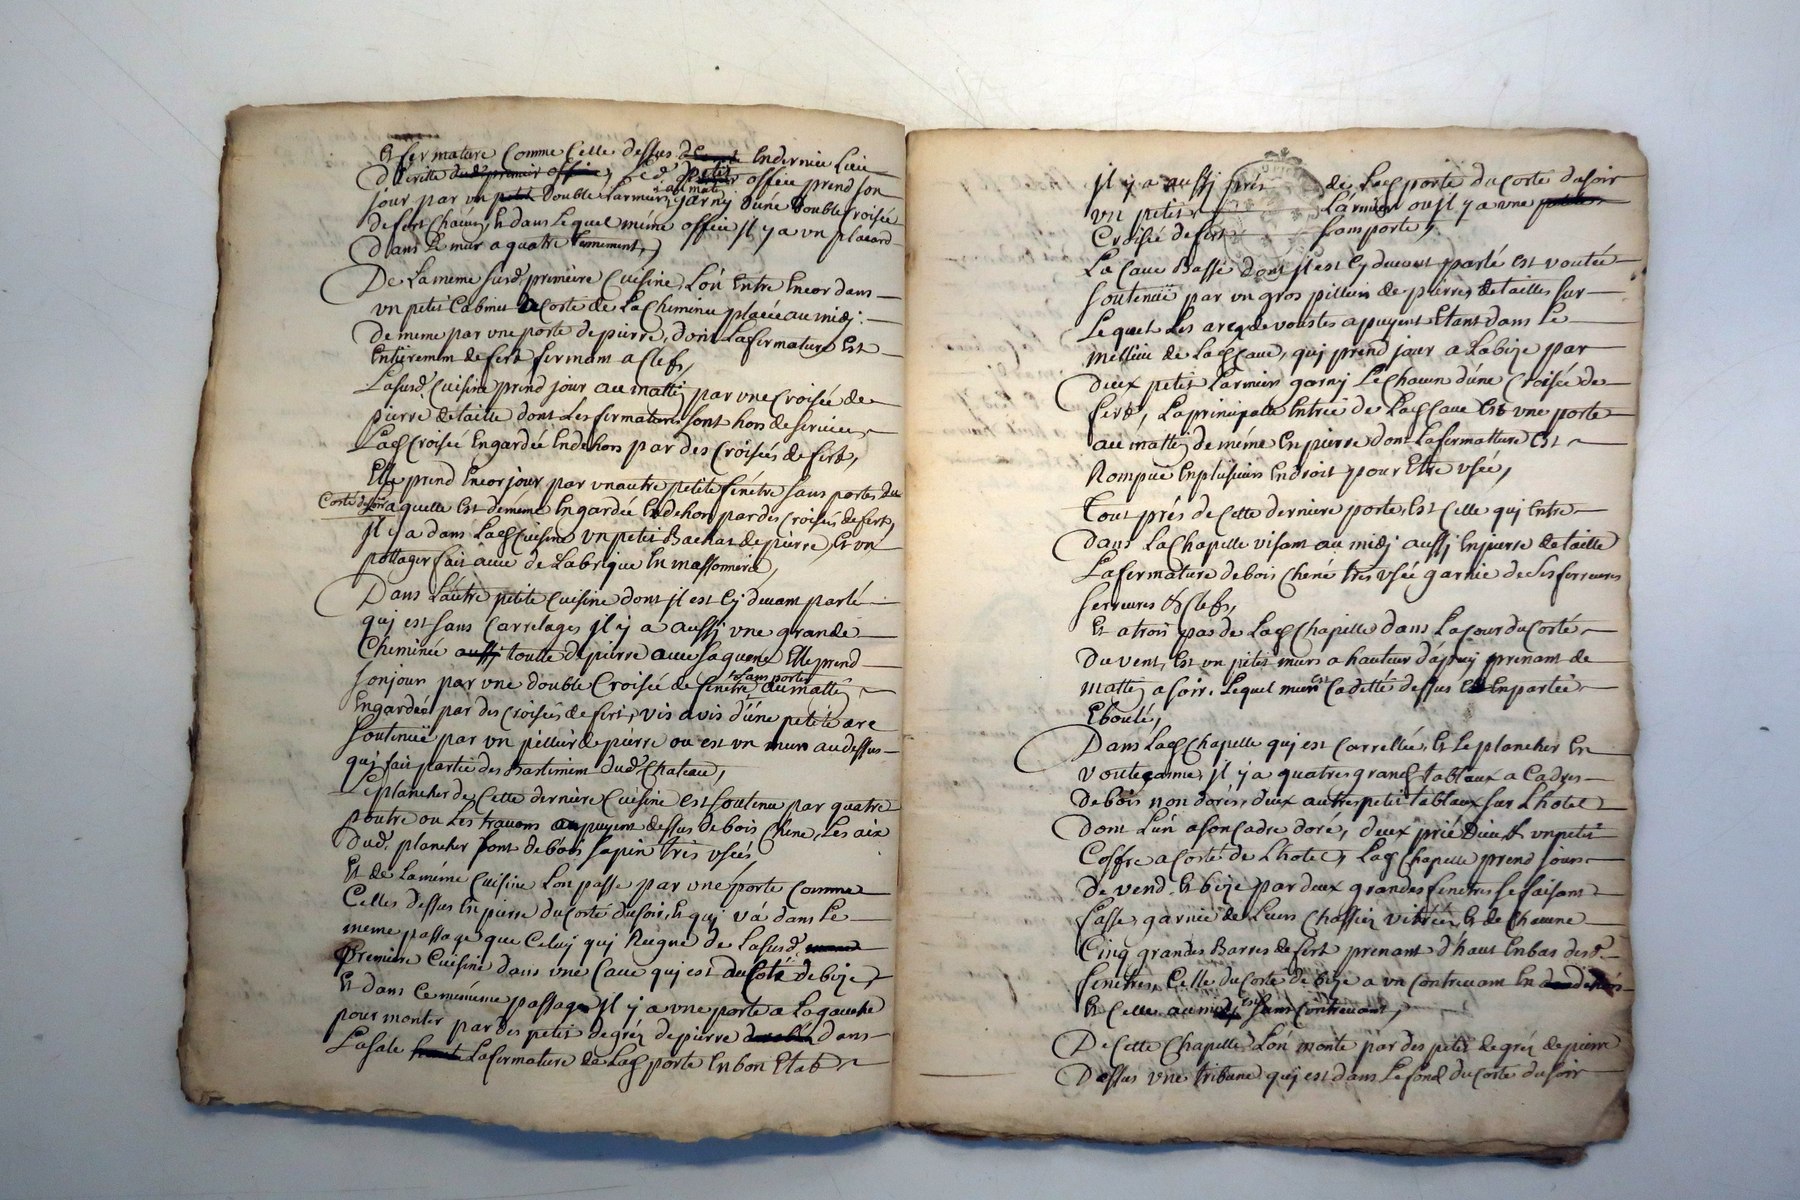 Et fermature Comme Celle dessus Enderniee Lieu
Led. petit office prend son
jour par vn Double Larmier au matin garny d'une Double Croisée
de fert Chacun, et dans Lequel méme office jl y a vn placard
Dans Le mur a quatre
De La meme susd. premiere Cuisine L'on Entre Encor dans
vn petit Cabinet a Costé de La Cheminée placée au midj
de meme par vne porte de pierre, dont La fermature Est
Entierement de fert fermant a Clefs,
La susd. Cuisine prend jour au mattin par vne Croisée de
pierre de taille dont Les fermatures sont hors de service,
Lad. Croisée Engardée Endehors par des Croisées de fert,
Elle prend Encor jour par vn autre petite fenétre sans portes du
Costé du soir Laquelle Est de méme Engardée Endehors par des Croisées de fert,
jl y a dans Lad. Cuisine vn petit Bachat de pierre, Et vn
pottager fait avec de La brique En massonnerie,
Dans L'autre petite Cuisine dont jl est Cy devant parlé
quj est sans Carrelages jl y a aussj vne grande
Cheminée aussj toutte de pierre avec sa quene Elle prend
son jour par vne double Croisée de fenetre sans portes au mattin
Engardée par des Croisées de fert, vis avis d'une petite arc
soutenuë par vn pillier de pierre ou est vn mur au dessus
quj fait partie des Bastiment dud. Chateau,
Le plancher de Cette derniere Cuisine est soutenu par quatre
poutre ou Les travons apuyent dessus de bois Chene, Les aix
dud. plancher sont de bois sapin tres vsées,
Et de La méme Cuisine L'on passe par vne porte Comme
Celles dessus En pierre du Costé du soir, Et quj vá dans Le
meme passage que Celuy quj Regne de La susd.
Premiere Cuisine dans vne Cave quj est du Costé de bize,
Et dans Ce memme passage jl y a vne porte a La gauche
pour monter par des petits degréz de pierre dans
La sale La fermature de Lad. porte En bon Etat
jl y a aussj prés de Lad. porte du Costé du soir
vn petit Larmier ou jl y a vne
Croisée de fert sans porte,
La Cave Basse dont jl est Cy devant parlé est voutée
soutenuë par vn gros pillier de pierres de tailles sur
Lequel Les arcq de voustes apuyent Etant dans Le
millieu de Lad. Cave, quj prend jour a La bize par
deux petits Larmier garnj Le Chacun d'une Croisée de
fert, La principalle Entrée de Lad. Cave Est vne porte
au mattin de méme En pierre dont La fermatture Est
Rompue En plusieurs Endroit pour Etre vsée,
Tout prés de Cette derniere porte, Est Celle quj Entre
dans La Chapelle visant au midj aussj En pierre de taille
La fermature de bois Chéne tres vsée garnie de Ses ferreures
serreures & Clefs,
Et a trois pas de Lad. Chapelle dans La Cour du Costé
du vent, Est vn petit murs a hauteur d'apuy prenant de
mattin a soir, Lequel mur est Cadetté dessus Et En partie
Eboulé,
Dans Lad. Chapelle quj est Carrellée, Et Le plancher En
voutegamme, jl y a quatres grands tableaux a Cadres
de bois non dorés, deux autres petit tableaux sur L'hotel
dont L'un a son Cadre doré, deux prié Dieu, & vn petit
Coffre a Costé de L'hotel, Lad. Chapelle prend jours
de vend Et bize par deux grandes fenetres se faisant
fasse, garnie de Leurs Chassier vitrées, Et de Chacune
Cinq grandes Barres de fert prenant d'haut En bas desd.
fenétres, Celle du Costé de bize a vn Contrevant En dehors
Et Celle au midj est sans Contrevant,
De Cette Chapelle L'on monte par des petit degréz de pierre
Dessus vne tribune quj est dans Le fond du Costé du soir